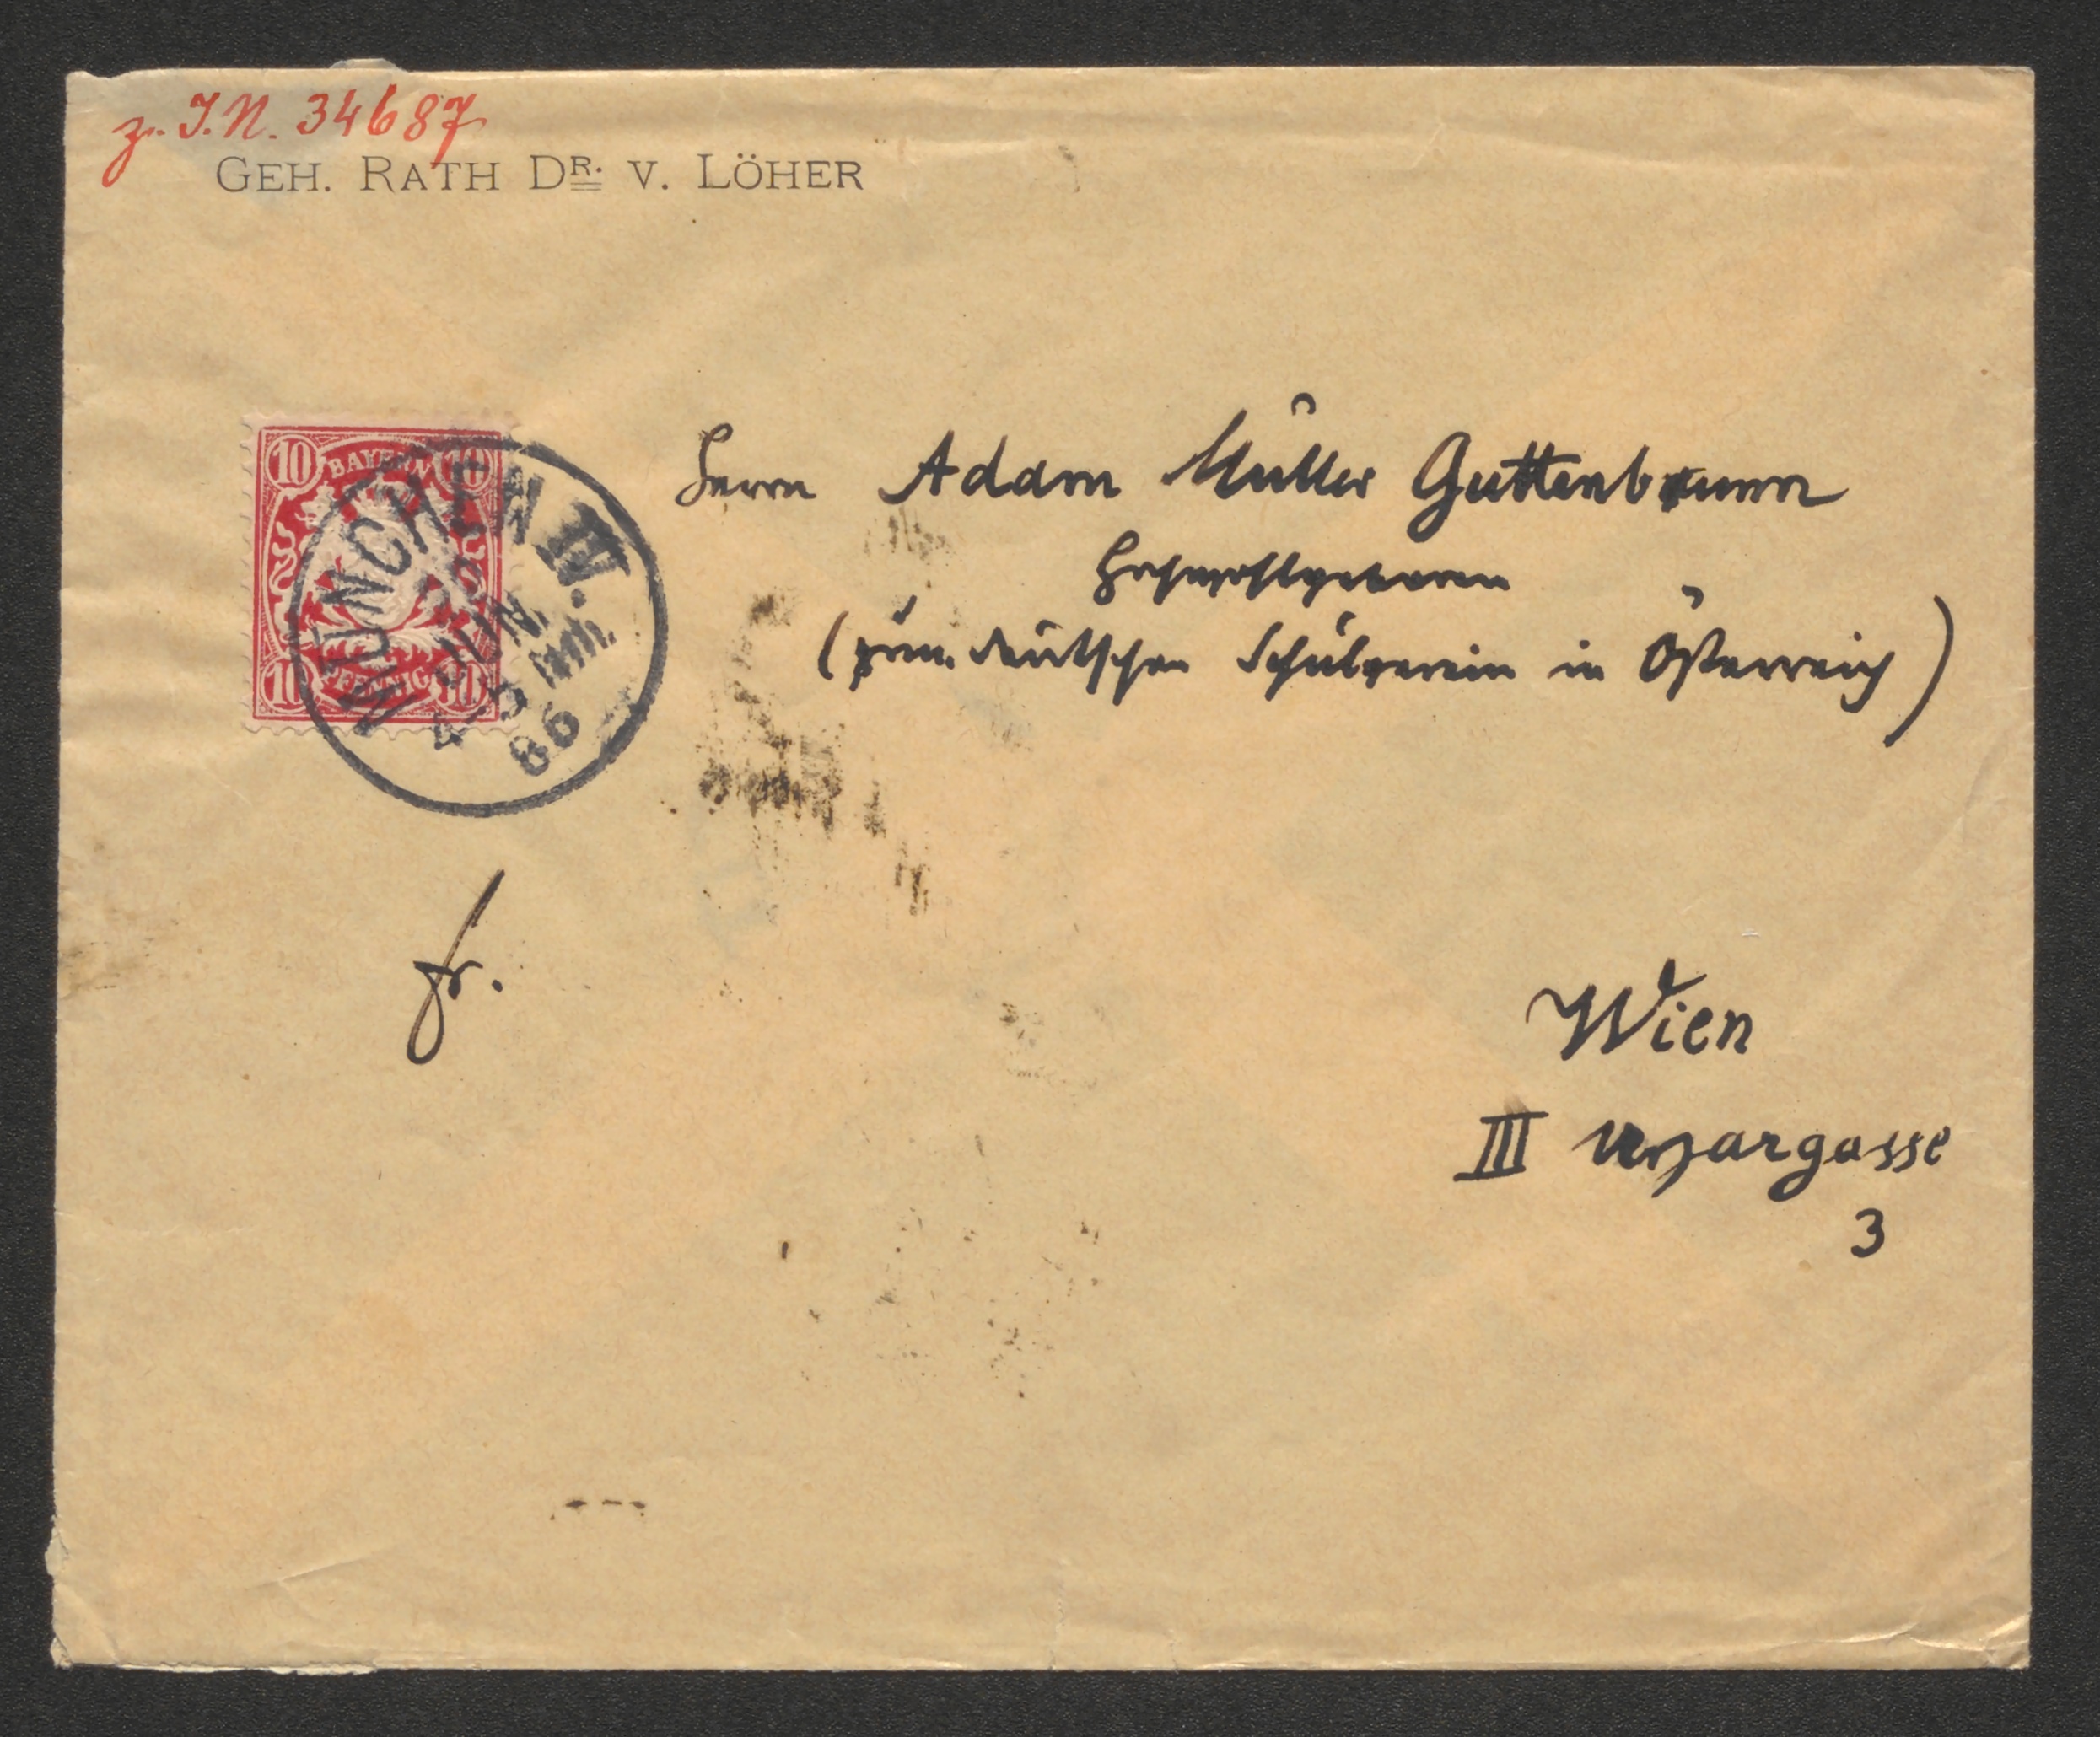 z. I.N. 34687
GEH. RATH DR. V. LÖHER
10 BAYERN 10
10 PFENNIG 10
MÜNCHEN III.
JUN.
4-5 NM.
86
Herrn Adam Müller Guttenbrunn
Hochwohlgeboren
(zum deutschen Schulverein in Österreich)
fr.
Wien
III
3